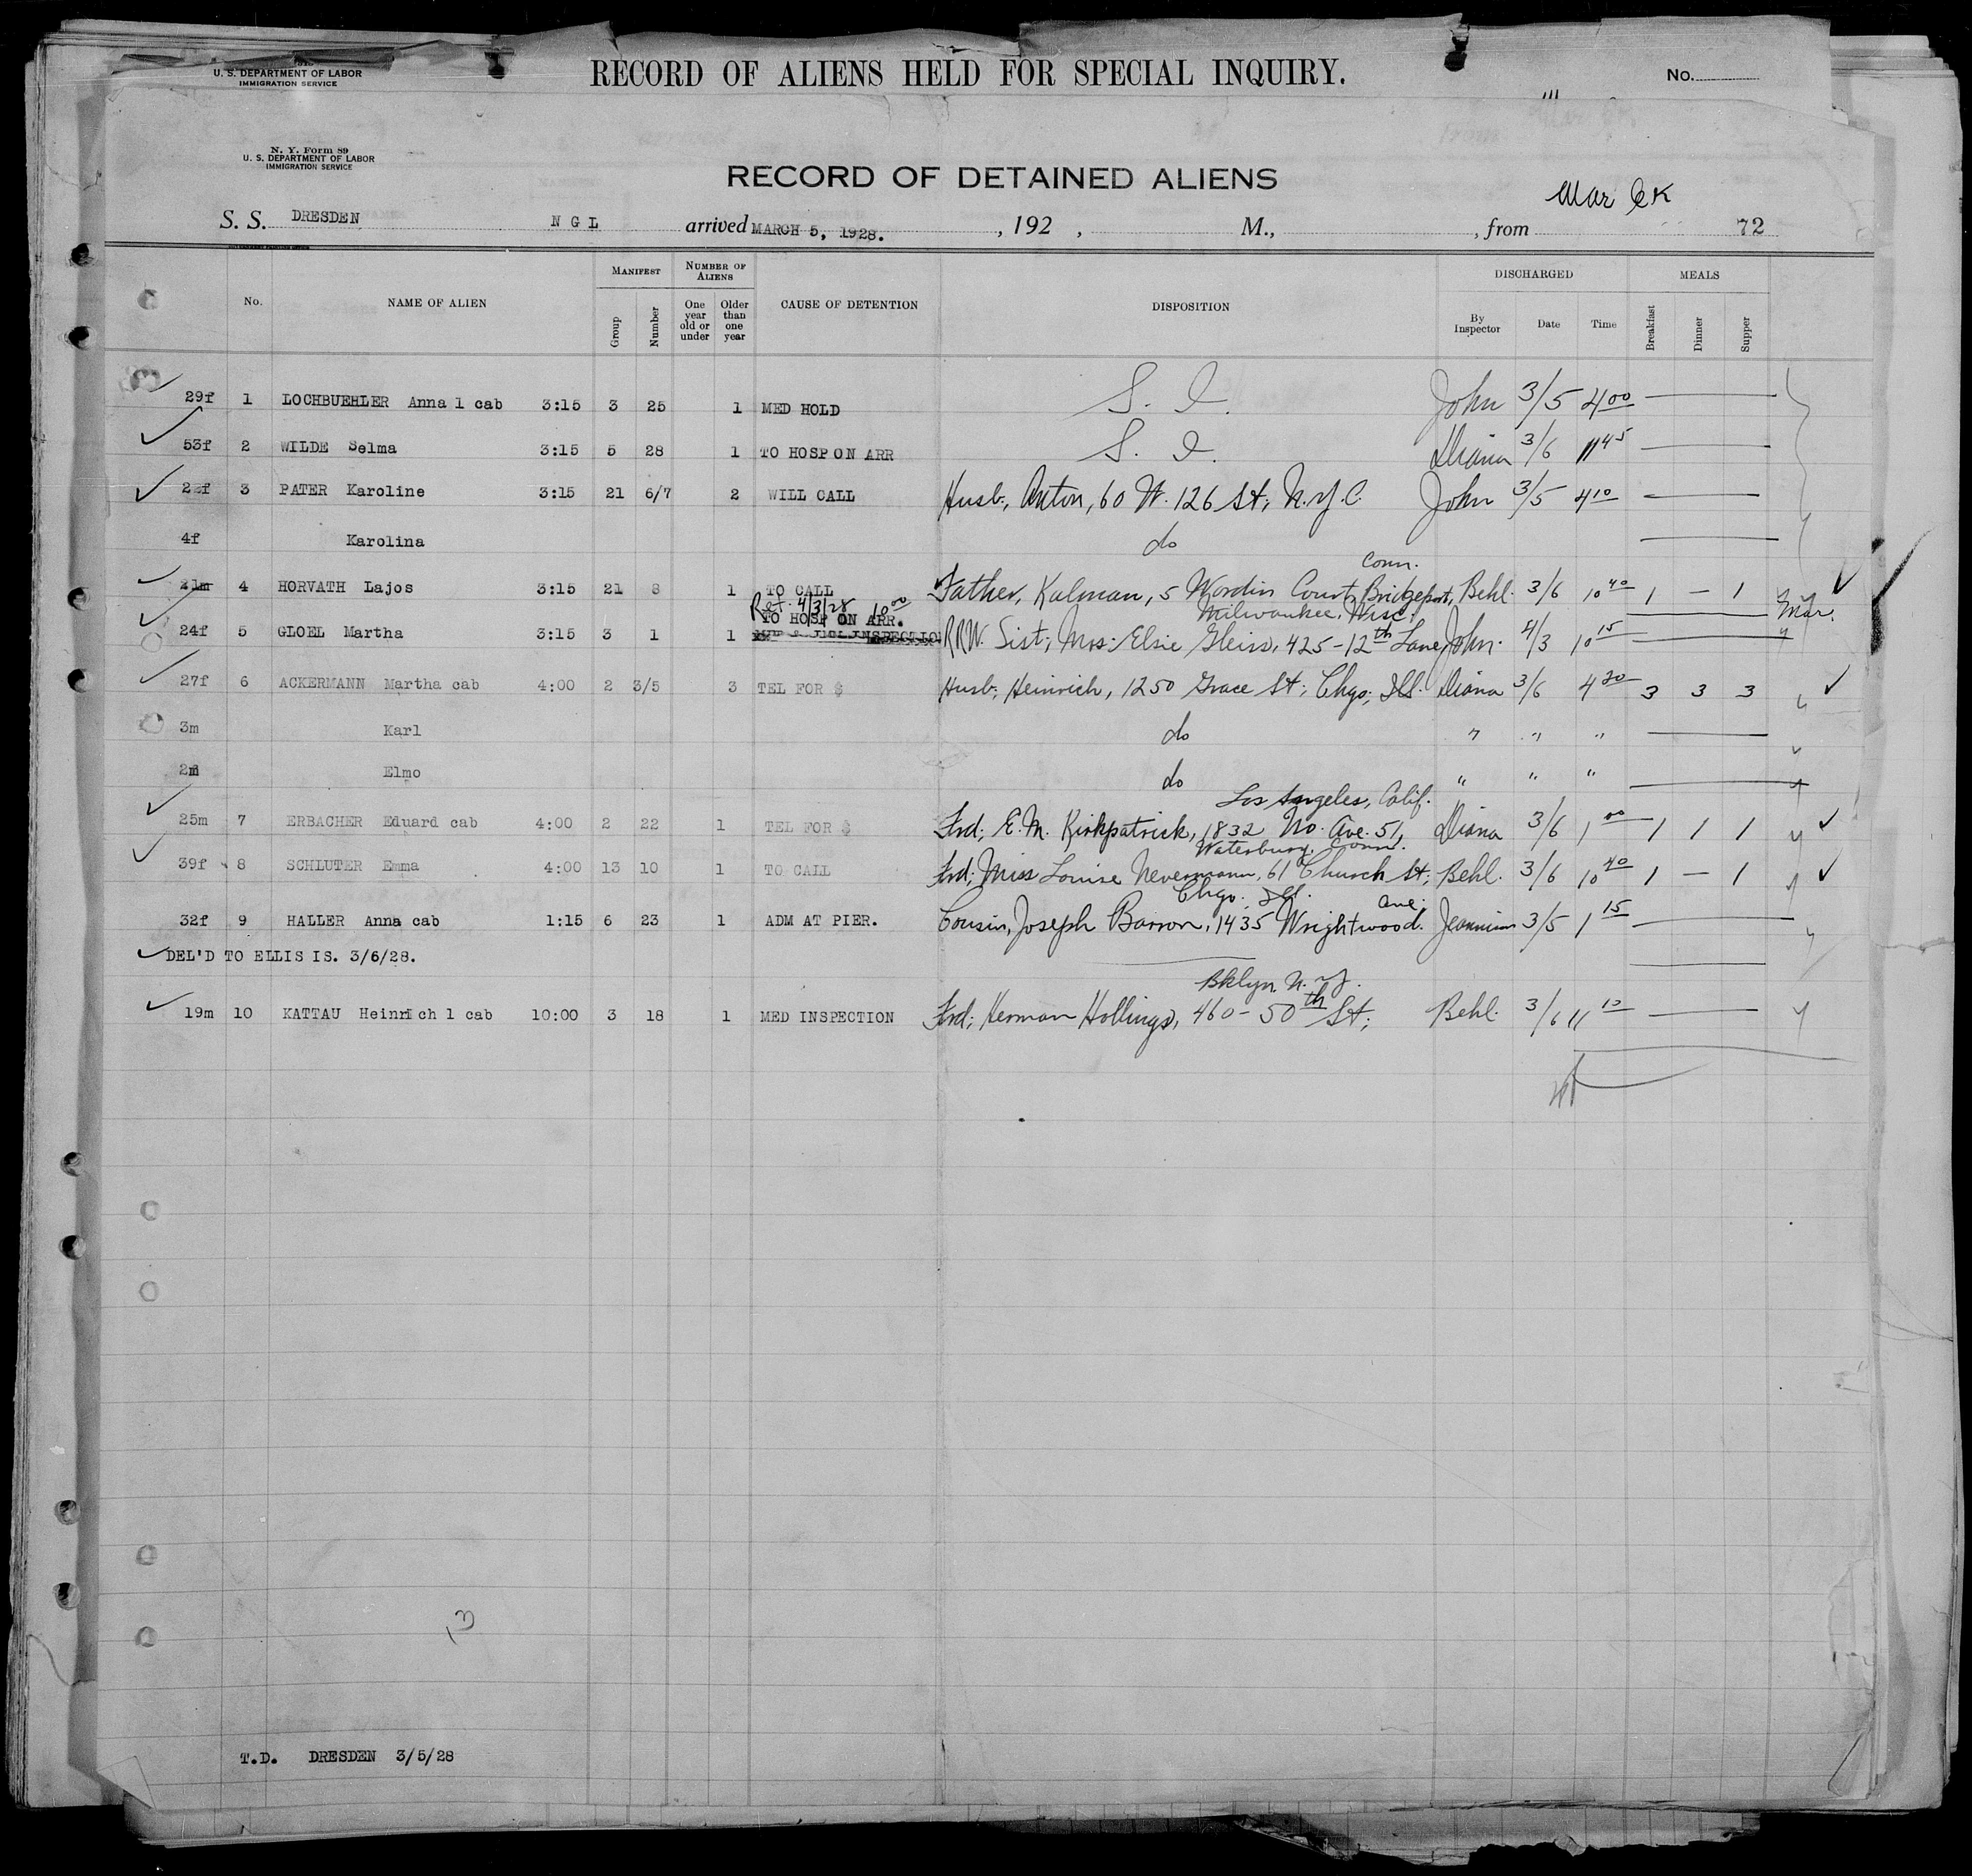 U. S. DEPARTMENT OF LABOR
IMMIGRATION SERVICE
RECORD OF ALIENS HELD FOR SPECIAL INQUIRY.
No.
N. Y. Form 89
U. S. DEPARTMENT OF LABOR
IMMIGRATION SERVICE
RECORD OF DETAINED ALIENS
S. S. DRESDEN N G L arrived MARCH 5, 1928. , 192 , M., , from 72
No. NAME OF ALIEN MANIFEST Group Number NUMBER OF ALIENS One year old or under Older than one year CAUSE OF DETENTION DISPOSITION DISCHARGED By Inspector Date Time MEALS Breakfast Dinner Supper
29f 1 LOCHBUEHLER Anna 1 cab 3:15 3 25 1 MED HOLD S. I. John 3/5 4 00
53f 2 WILDE Selma 3:15 5 28 1 TO HOSP ON ARR S. I. Diana 3/6 11 45
3 PATER Karoline 3:15 21 6/7 2 WILL CALL Husb; Anton, 60 W. 126 St; N.Y.C. John 3/5 4 10
4f Karolina do
Conn.
21m 4 HORVATH Lajos 3:15 21 8 1 TO CALL Father, Kalman, 5 Wordin Court, Bridgeport, Behl. 3/6 10 40 1 — 1
Ret. 4/3/28 10 00
TO HOSP ON ARR. Milwaukee, Wisc. Mar.
24f 5 GLOEL Martha 3:15 3 1 1 INSPECTION RRW. Sist; Mrs. Elsie Gleiss, 425-12th Lane, John. 4/3 10 15
27f 6 ACKERMANN Martha cab 4:00 2 3/5 3 TEL FOR $ Husb; Heinrich, 1250 Grace St; Chgo; Ill. Diana 3/6 4 20 3 3 3
3m Karl do " " "
2m Elmo do " " "
Los Angeles, Calif.
25m 7 ERBACHER Eduard cab 4:00 2 22 1 TEL FOR $ Frd; E. M. Kirkpatrick, 1832 No. Ave. 51, Diana 3/6 1 00 1 1 1
Waterbury, Conn.
39f 8 SCHLUTER Emma 4:00 13 10 1 TO CALL Frd; Miss Louise Nevermann, 61 Church St; Behl. 3/6 10 40 1 — 1
Chgo. Ill. Ave;
32f 9 HALLER Anna cab 1:15 6 23 1 ADM AT PIER. Cousin, Joseph Barron, 1435 Wrightwood. 3/5 1 15
DEL'D TO ELLIS IS. 3/6/28.
Bklyn N. Y.
19m 10 KATTAU Heinrich 1 cab 10:00 3 18 1 MED INSPECTION Frd; Herman Hollings, 460-50th St; Behl. 3/6 11 10
13
T.D. DRESDEN 3/5/28